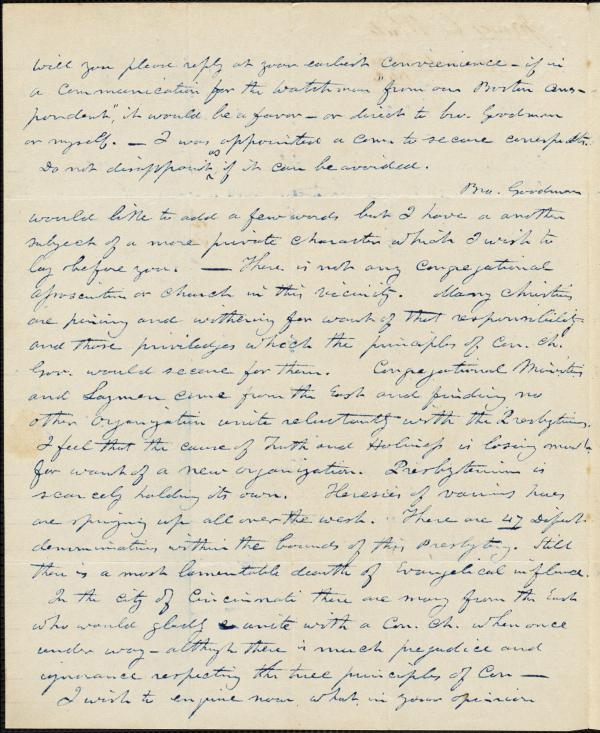 will you please reply at your earliest convenience – if in
a communication for the Watchman "from our Boston corres-
pondent", it would be a favor – or direct to bro. Goodman
or myself. – I was appointed a Com. to secure correspdts.
Do not disappoint us if it can be avoided.
Bro. Goodman
would like to add a few words but I have a another
subject of a more private character which I wish to
lay before you. — There is not any Congregational
association or church in this vicinity. Many Christians
are pining and withering for want of that responsibility
and those priviledges which the principles of Con. Ch.
Gov. would secure for them. Congregational Ministers
and Laymen come from the East and finding no
other organization unite reluctantly with the Presbyterians.
I feel that the cause of Truth and Holiness is losing much
for want of a new organization. Presbyterianism is
scarcely holding its own. Heresies of various hues
are springing up all over the west. There are 47 differt.
denominations within the bounds of this Presbytery. Still
there is a most lamentable dearth of Evangelical influence.
In the city of Cincinnati there are many from the East
who would gladly unite with a Con. Ch. when once
under way – although there is much prejudice and
ignorance respecting the true principles of Con —
I wish to enquire now, what, in your opinion